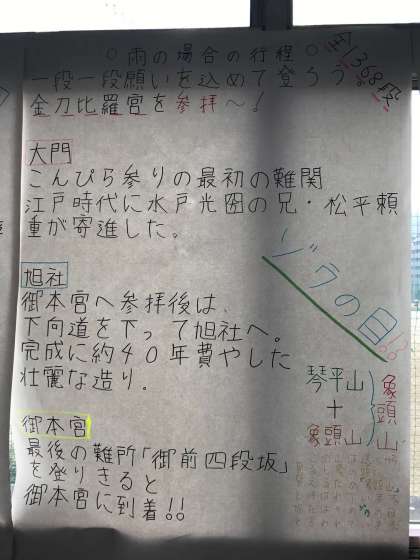 ○雨の場合の行程○
一段一段願いを込めて登ろう。
金刀比羅宮を参拝～!
全1368段
大門
こんぴら参りの最初の難関
江戸時代に水戸光圀の兄・松平頼
重が寄進した。
ゾウの目
旭社
御本宮へ参拝後は、
下向道を下って旭社へ。
完成に約40年費やした
壮麗な造り。
琴平山
+
象頭山
象頭山
御本宮
最後の難所「御前四段坂」
を登りきると
御本宮に到着!!